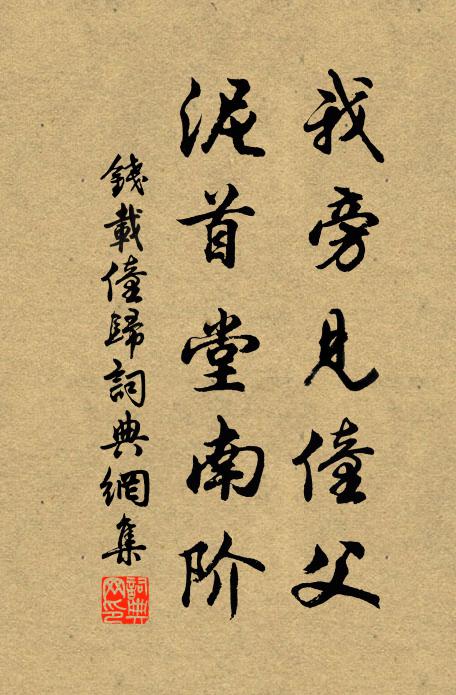 我旁見僮父
泥首堂南阶
錢載僮歸詞典網集
詞典网印